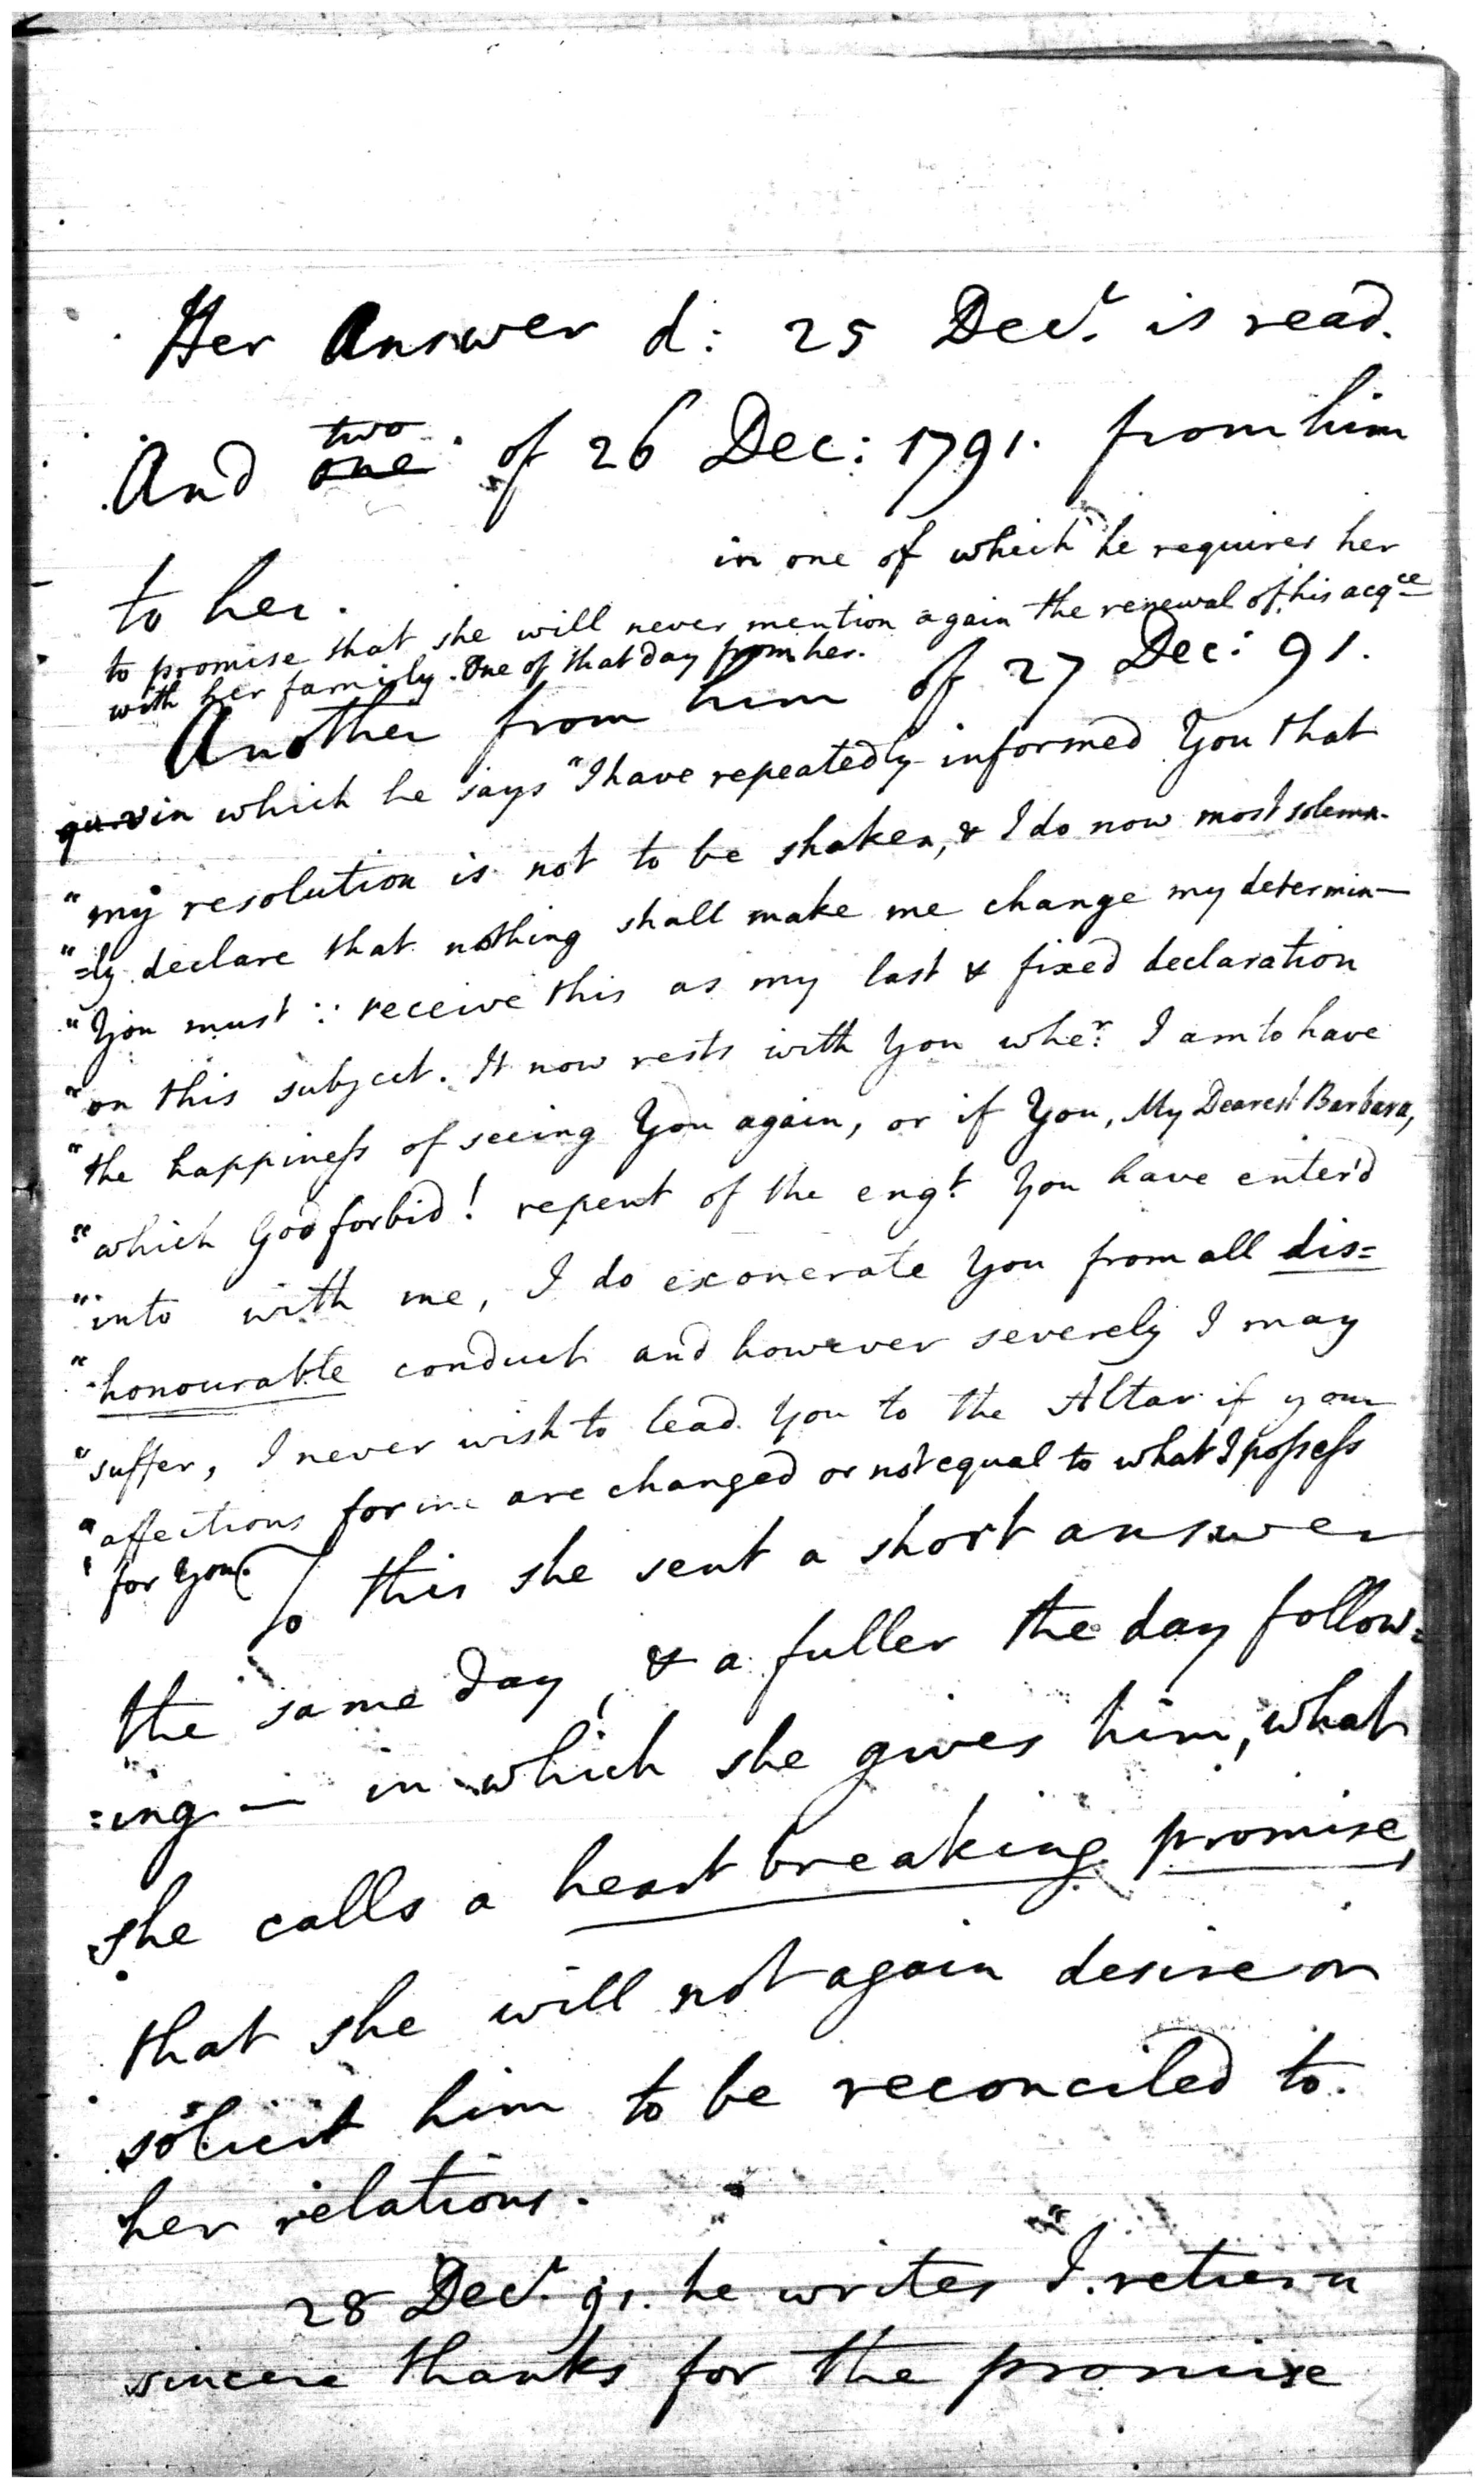 Her Answer d: 25 Decr. is read.
And two of 26 Dec: 1791. from him
to her. in one of which he requires her
to promise that she will never mention again the renewal of his acqce
with her family. One of that day from her.
Another from him of 27 Dec: 91.
in which he says "I have repeatedly informed You that
"my resolution is not to be shaken, & I do now most solemn-
"=ly declare that nothing shall make me change my determin—
"You must ∵ receive this as my last & fixed declaration
"on this subject. It now rests with You wher. I am to have
"the happiness of seeing You again, or if You, My Dearest Barbara,
"which God forbid! repent of the engt. You have enter'd
"into with me, I do exonerate You from all dis=
"honourable conduct and however severely I may
"suffer, I never wish to lead You to the Altar if your
"affections for me are changed or not equal to what I possess
"for You. To this she sent a short answer
the same day, & a fuller the day follow=
=ing — in which she gives him, what
she calls a heart breaking promise,
that she will not again desire or
solicit him to be reconciled to
her relations.
28 Decr. 91. he writes "I return
sincere thanks for the promise